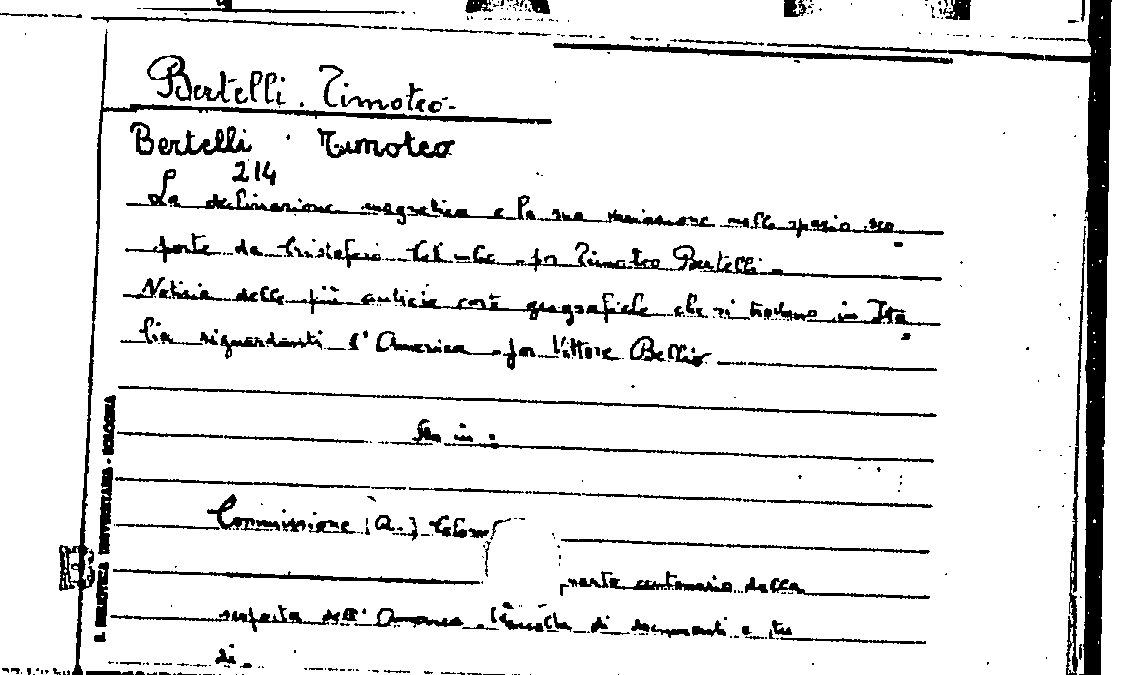 Bertelli. Timoteo-
Bertelli Timoteo
214
La declinazione magnetica e la sua variazione nello spazio sco
perte da Cristoforo Colombo - per Timoteo Bertelli -
Notizia delle più antiche carte geografiche che si trovano in Ita
lia riguardanti l'America - per Vittore Bellio
Sta in:
Commissione (R.) Colom
quarto centenario dalla
scoperta dell'America. Raccolta di documenti e stu
di.
B. BIBLIOTECA UNIVERSITARIA - BOLOGNA